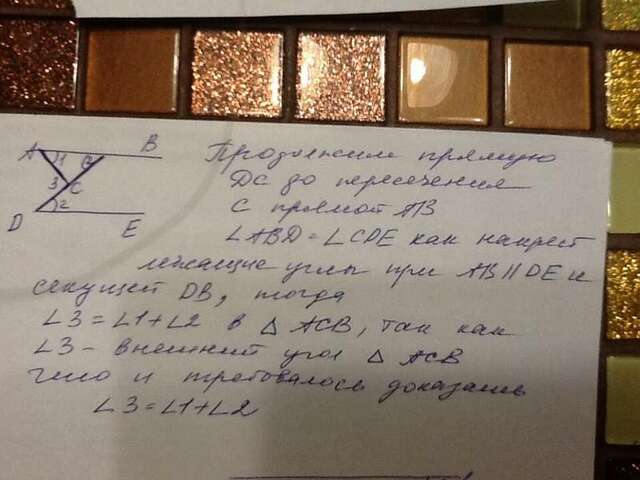 A 1 B
3 C
D 2 E
Продолжим прямую
DC до пересечения
с прямой AB
∠ABD = ∠CDE как накрест
лежащие углы при AB || DE и
секущей DB, тогда
∠3 = ∠1 + ∠2 в △ ACB, так как
∠3 - внешний угол △ ACB
Что и требовалось доказать
∠3 = ∠1 + ∠2